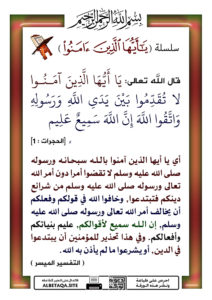 بسم الله الرحمن الرحيم
سلسلة ﴿ يَٰٓأَيُّهَا ٱلَّذِينَ ءَامَنُوا۟ ﴾
قال الله تعالى: يَا أَيُّهَا الَّذِينَ آمَنُوا
لَا تُقَدِّمُوا بَيْنَ يَدَيِ اللَّهِ وَرَسُولِهِ
وَاتَّقُوا اللَّهَ إِنَّ اللَّهَ سَمِيعٌ عَلِيم
[الحجرات : 1] .
أي يا أيها الذين آمنوا بالله سبحانه ورسوله
صلى الله عليه وسلم لا تقضوا أمرا دون أمر الله
تعالى ورسوله صلى الله عليه وسلم من شرائع
دينكم فتبتدعوا. وخافوا الله في قولكم وفعلكم
أن يخالف أمر الله تعالى ورسوله صلى الله عليه
وسلم, إن الله سميع لأقوالكم, عليم بنياتكم
وأفعالكم. وفي هذا تحذير للمؤمنين أن يبتدعوا
في الدين, أو يشرعوا ما لم يأذن به الله.
( التفسير الميسر )
احرص على طباعة
ونشر هذه الورقة
ALBETAQA.SITE